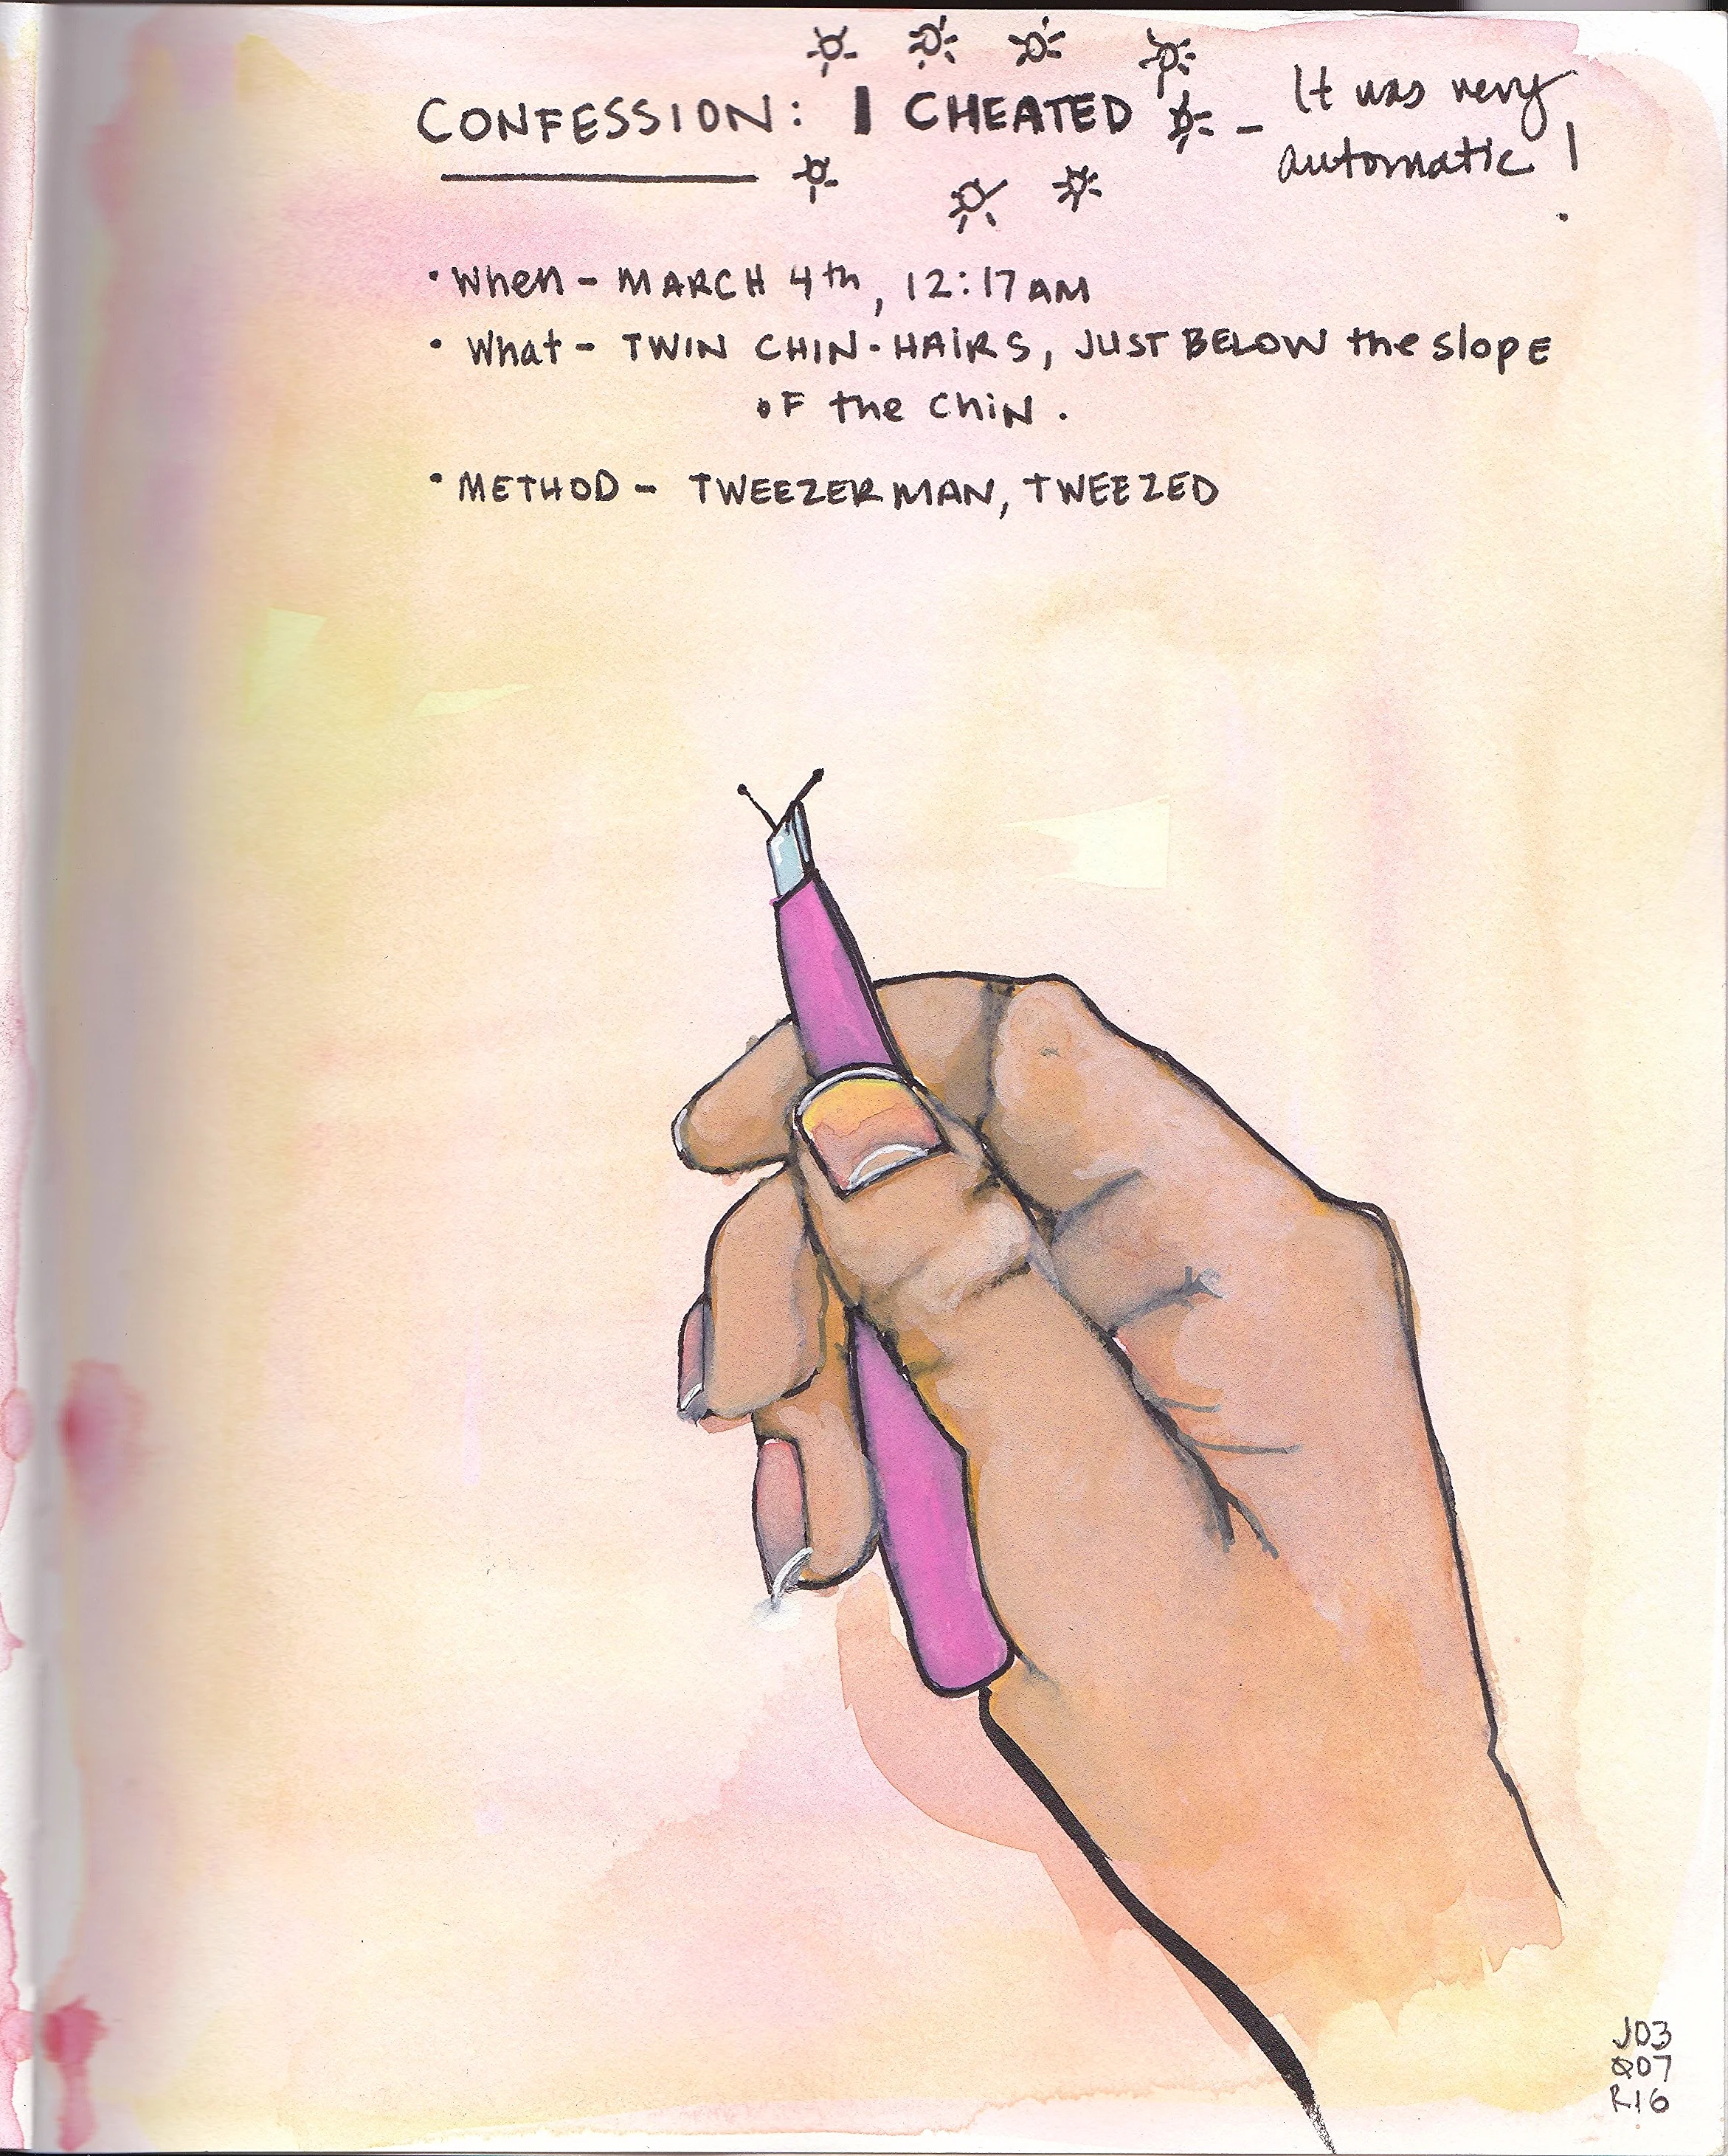 CONFESSION: I CHEATED - It was very
automatic!
• When - MARCH 4th, 12:17AM
• What - TWIN CHIN-HAIRS, JUST BELOW the slopE
oF the ChiN.
• METHOD - TWEEZERMAN, TWEEZED
JD3
007
R16